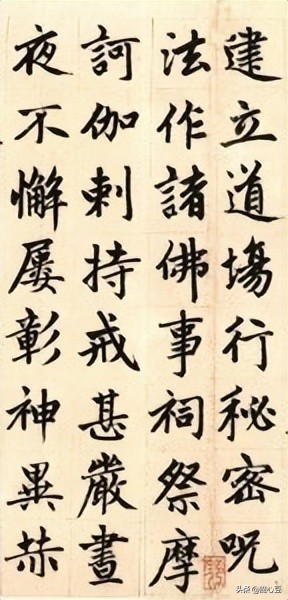 建立道場行秘密呪
法作諸佛事祠祭摩
訶伽剌持戒甚嚴晝
夜不懈屢彰神異赫
头条 @甜心豆